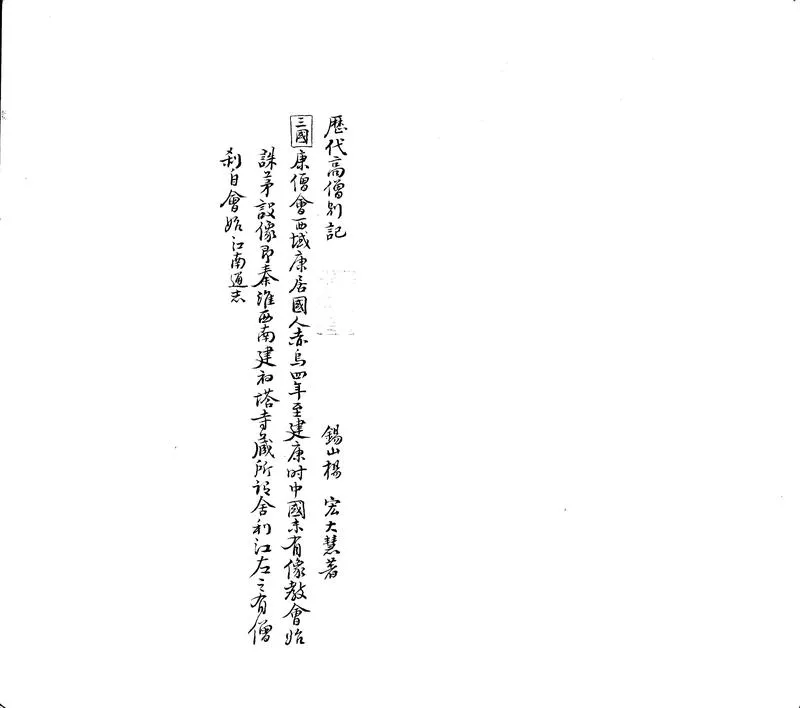 歷代高僧別記
錫山楊 宏大慧著
三國 康僧會西域康居國人赤烏四年至建康時中國未有像教會始
誅茅設像即秦淮西南建初塔寺藏所設舍利江左之有僧
刹自會始江南通志